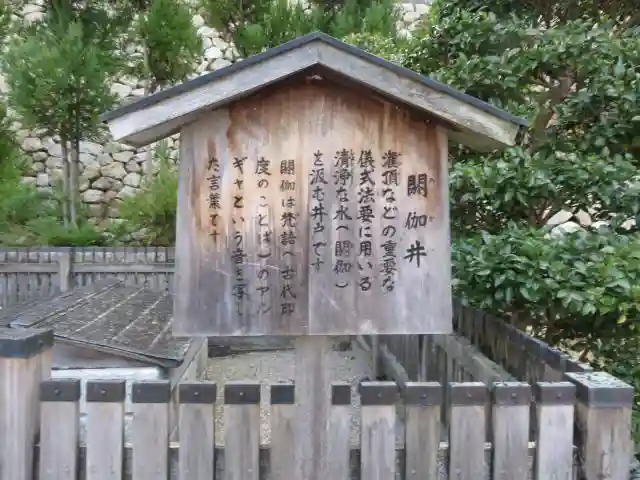 閼伽井
灌頂などの重要な
儀式法要に用いる
清浄な水（閼伽）
を汲む井戸です
閼伽は梵語（古代印
度のことば）のアル
ギャという音を写し
た言葉です